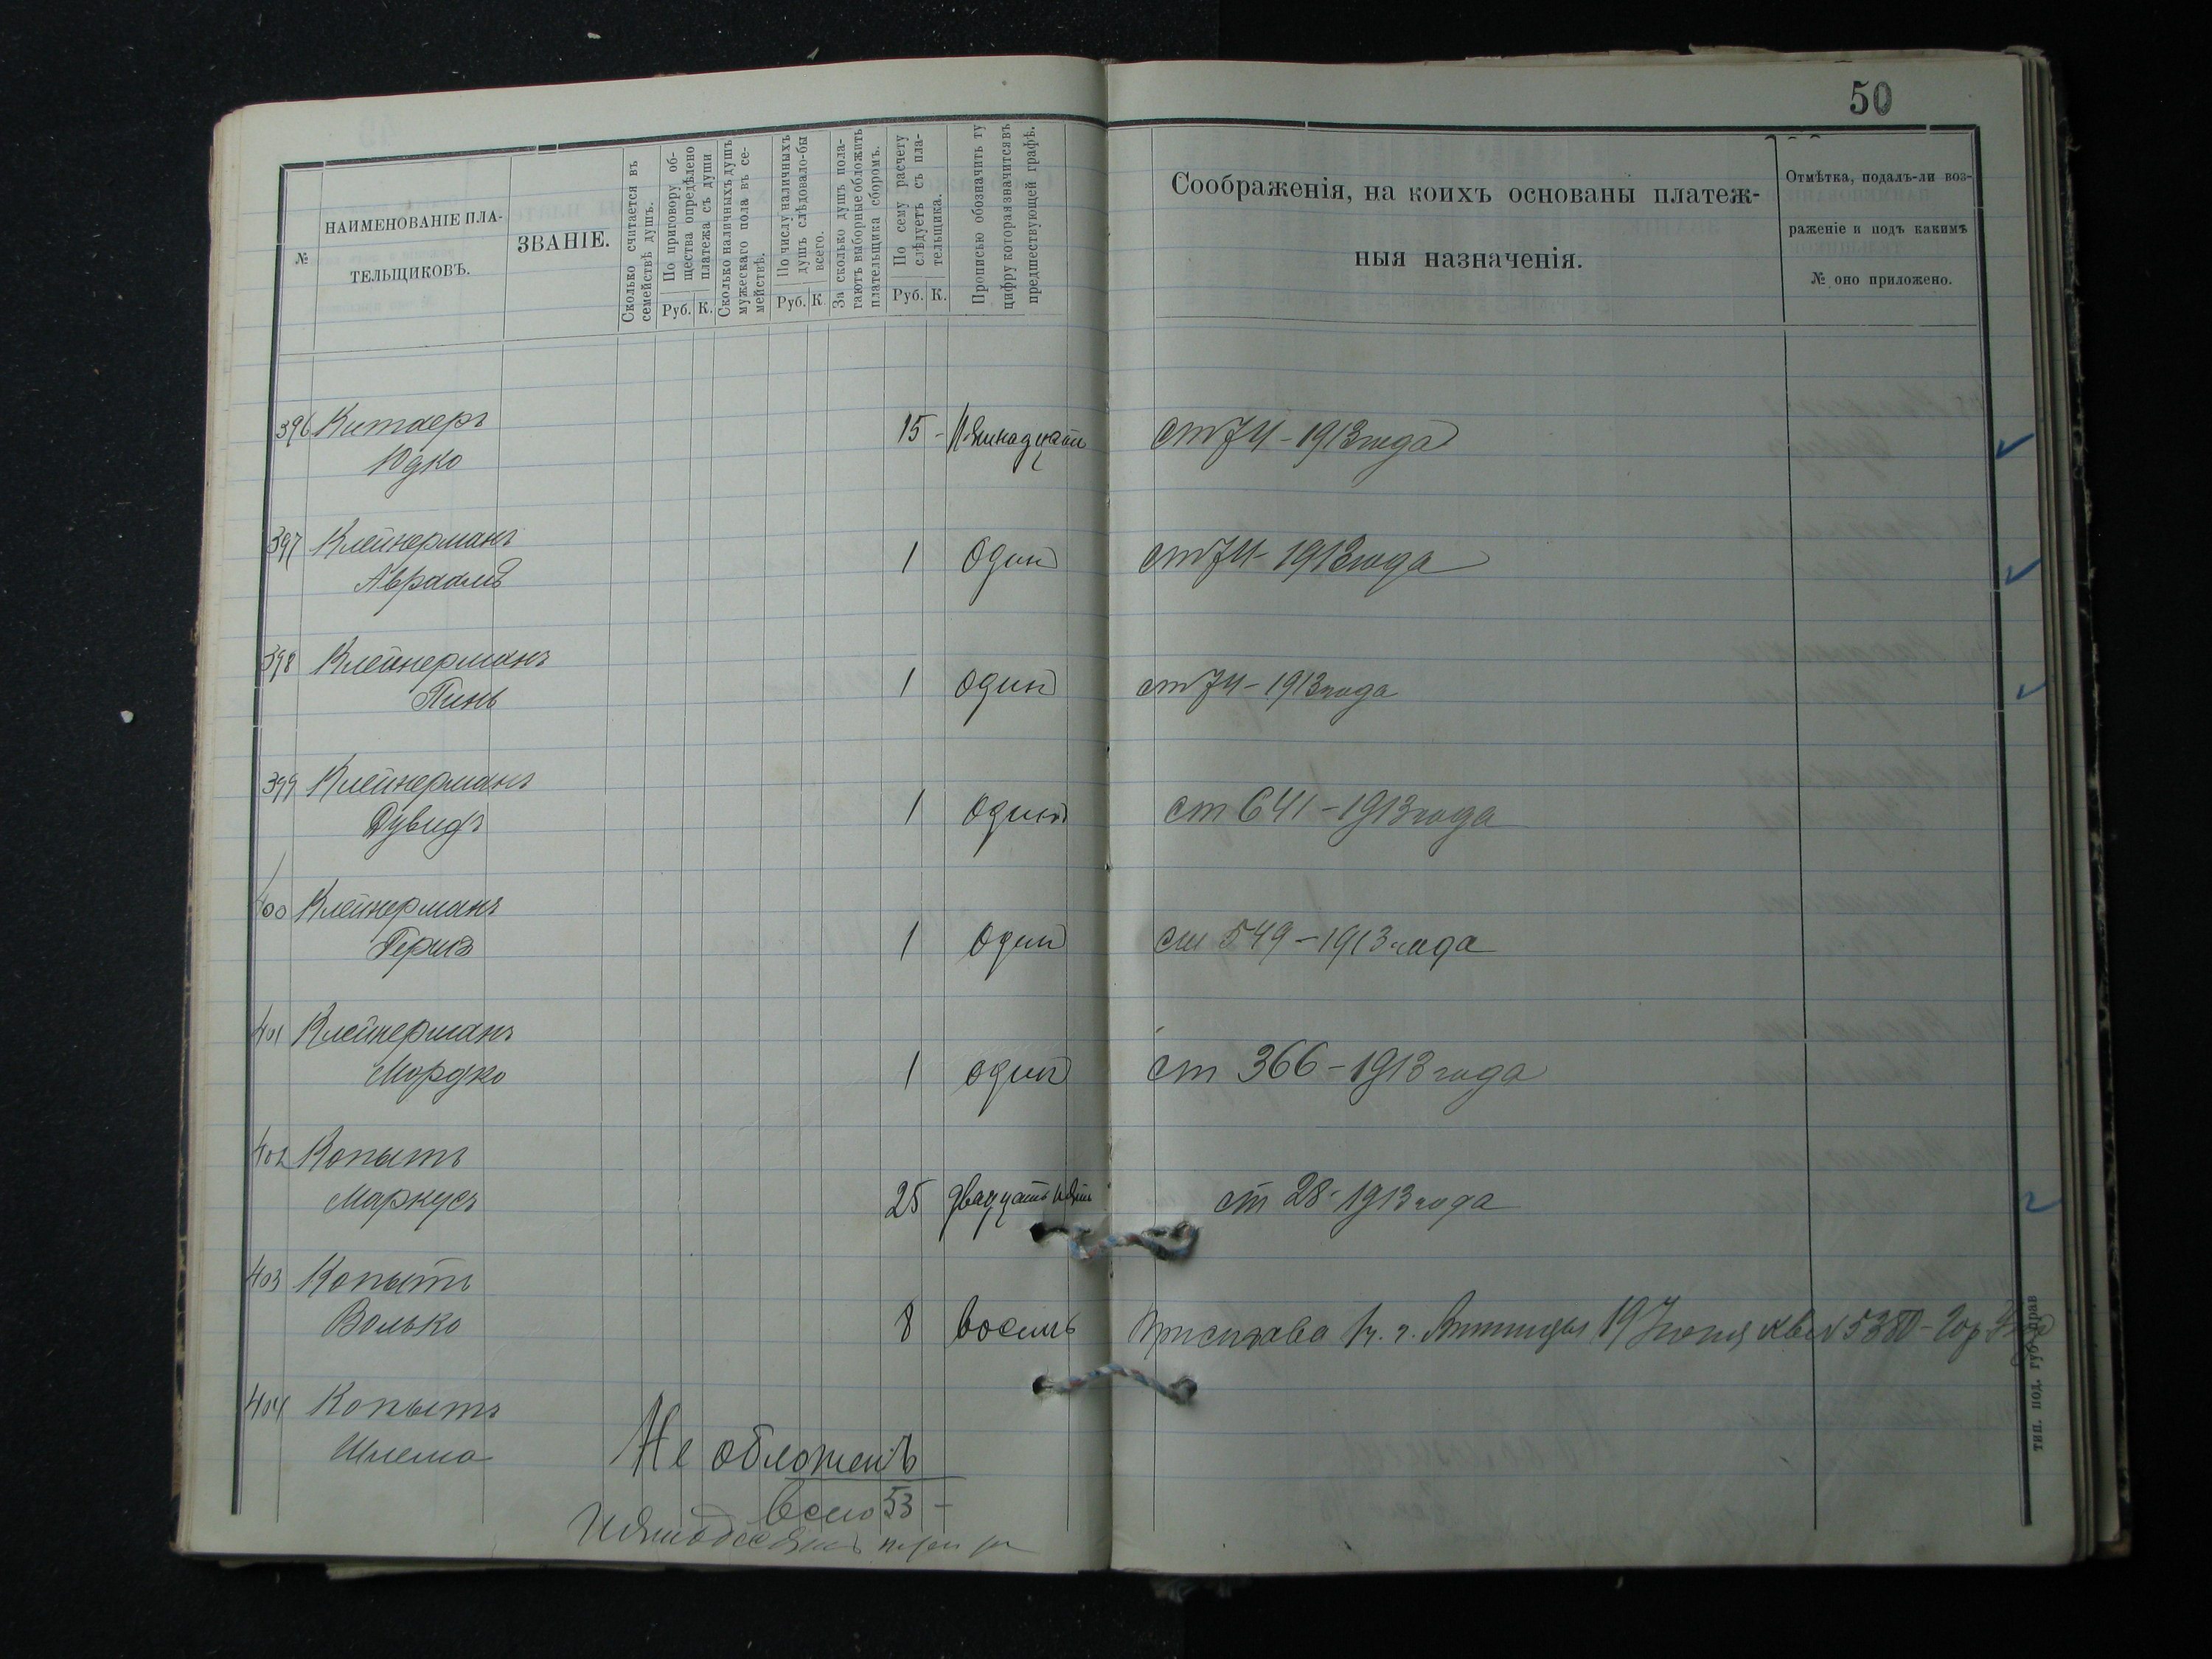 50
№
НАИМЕНОВАНІЕ ПЛА-
ТЕЛЬЩИКОВЪ.
ЗВАНІЕ.
Сколько считается въ
семействѣ душъ.
По приговору об-
щества опредѣлено
платежа съ души
Руб. К.
Сколько наличныхъ душъ
мужескаго пола въ се-
мействѣ.
По числу наличныхъ
душъ слѣдовало-бы
всего.
Руб. К.
За сколько душъ пола-
гаютъ выборные обложить
плательщика сборомъ.
По сему расчету
слѣдуетъ съ пла-
тельщика.
Руб. К.
Прописью обозначить ту
цифру которая значится въ
предшествующей графѣ.
Соображенія, на коихъ основаны платеж-
ныя назначенія.
Отмѣтка, подалъ-ли воз-
раженіе и подъ какимъ
№ оно приложено.
396 Китаеръ
Юдко
15 - Пятнадцать
ст 74 - 1913 года
397 Клейнерманъ
Авраамъ
1 Один
ст 74 - 1913 года
398 Клейнерманъ
Пинь
1 один
ст 74 - 1913 года
399 Клейнерманъ
Дувидъ
1 один
ст 641 - 1913 года
400 Клейнерманъ
Гершъ
1 один
ст 549 - 1913 года
401 Клейнерманъ
Мордко
1 один
ст 366 - 1913 года
402 Копытъ
Маркусъ
25 двадцать пять
ст 28 - 1913 года
403 Копытъ
Волько
8 восемь
19 Іюня кв № 5380 -
404 Копытъ
Шлема
Не обложенъ
Всего 53 -
Пятьдесятъ три р
тип. под. губ. прав